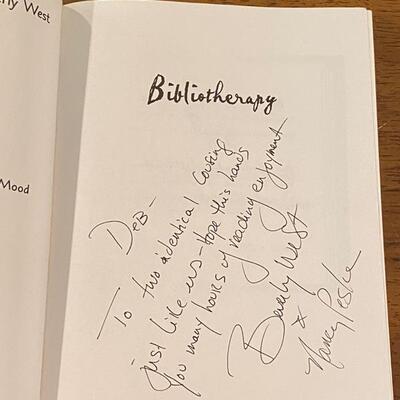 rly West
Mood
Bibliotherapy
Deb -
To two identical cousins
just like us - hope this hands
you many hours of reading enjoyment
Beverly West
x
Nancy Peske